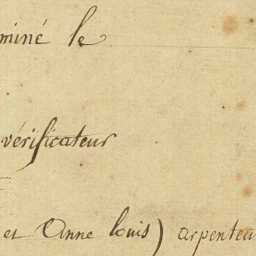 miné le
vérificateur
et Anne Louis) arpenteu